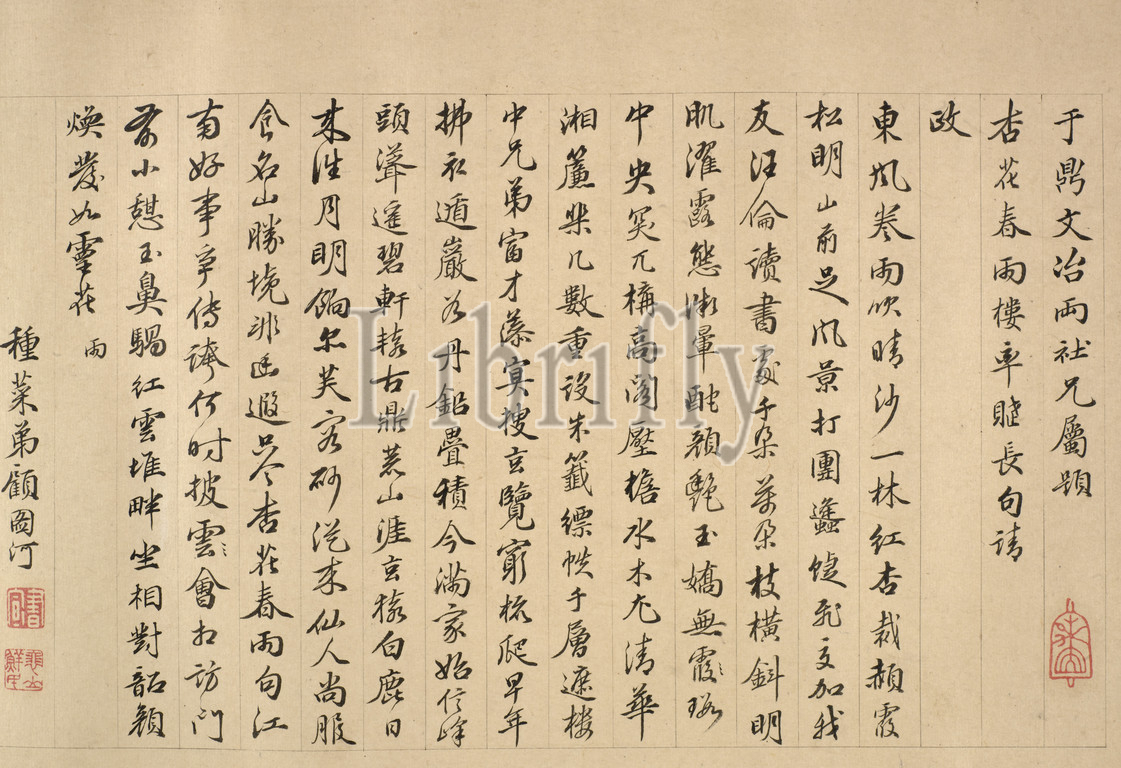 于鼎文冶兩社兄屬題
杏花春雨樓率賦長句請
政
東風卷雨吹晴沙一林紅杏裁赬霞
松明山前足風景打團蠭蜨飛交加我
友汪倫讀書處千朶萬朶枝橫斜明
肌濯露態微暈酡顏艷玉嬌無瑕
中央突兀構高閣壓檐水木尤清華
湘簾棐几數重設朱籤縹帙千層遮樓
中兄弟富才藻冥搜玄覽窮梳爬早年
拂衣遁巖谷丹鉛疊積今滿家始信峰
頭聳遙碧軒轅古鼎荒山涯玄猿白鹿日
來往月明餉尔芙蓉砂從來仙人尚服
食名山勝境非迂遐只今杏花春雨句江
南好事爭傳誇何時披雲會相訪門
前小憩玉鼻騧紅雲堆畔坐相對韶顏
煥發如雲花 雨
種菜弟顧圖河
Librifly